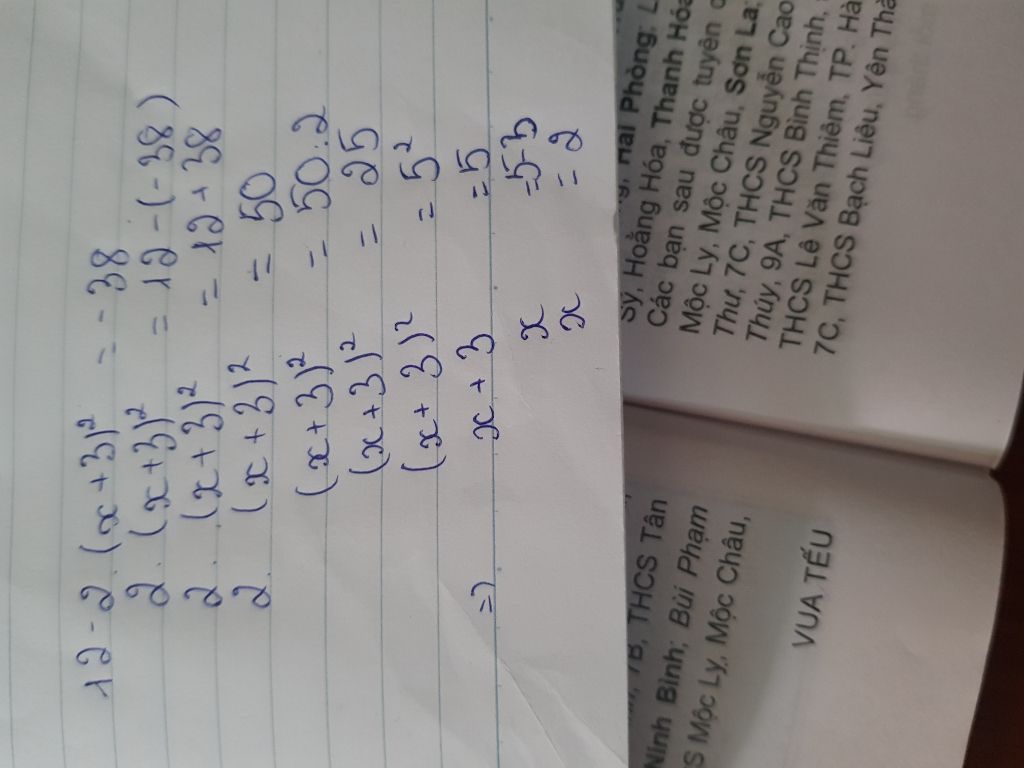 12 - 2 . (x + 3)² = - 38
2 . (x + 3)² = 12 - (- 38)
2 . (x + 3)² = 12 + 38
2 . (x + 3)² = 50
(x + 3)² = 50 : 2
(x + 3)² = 25
(x + 3)² = 5²
=> x + 3 = 5
x = 5 - 3
x = 2
7B, THCS Tân
Ninh Bình; Bùi Phạm
S Mộc Ly, Mộc Châu,
VUA TẾU
Hải Phòng; L
Sỹ, Hoằng Hóa, Thanh Hóa
Các bạn sau được tuyên d
Mộc Ly, Mộc Châu, Sơn La;
Thư, 7C, THCS Nguyễn Cao
Thúy, 9A, THCS Bình Thịnh,
THCS Lê Văn Thiêm, TP. Hà
7C, THCS Bạch Liêu, Yên Thà